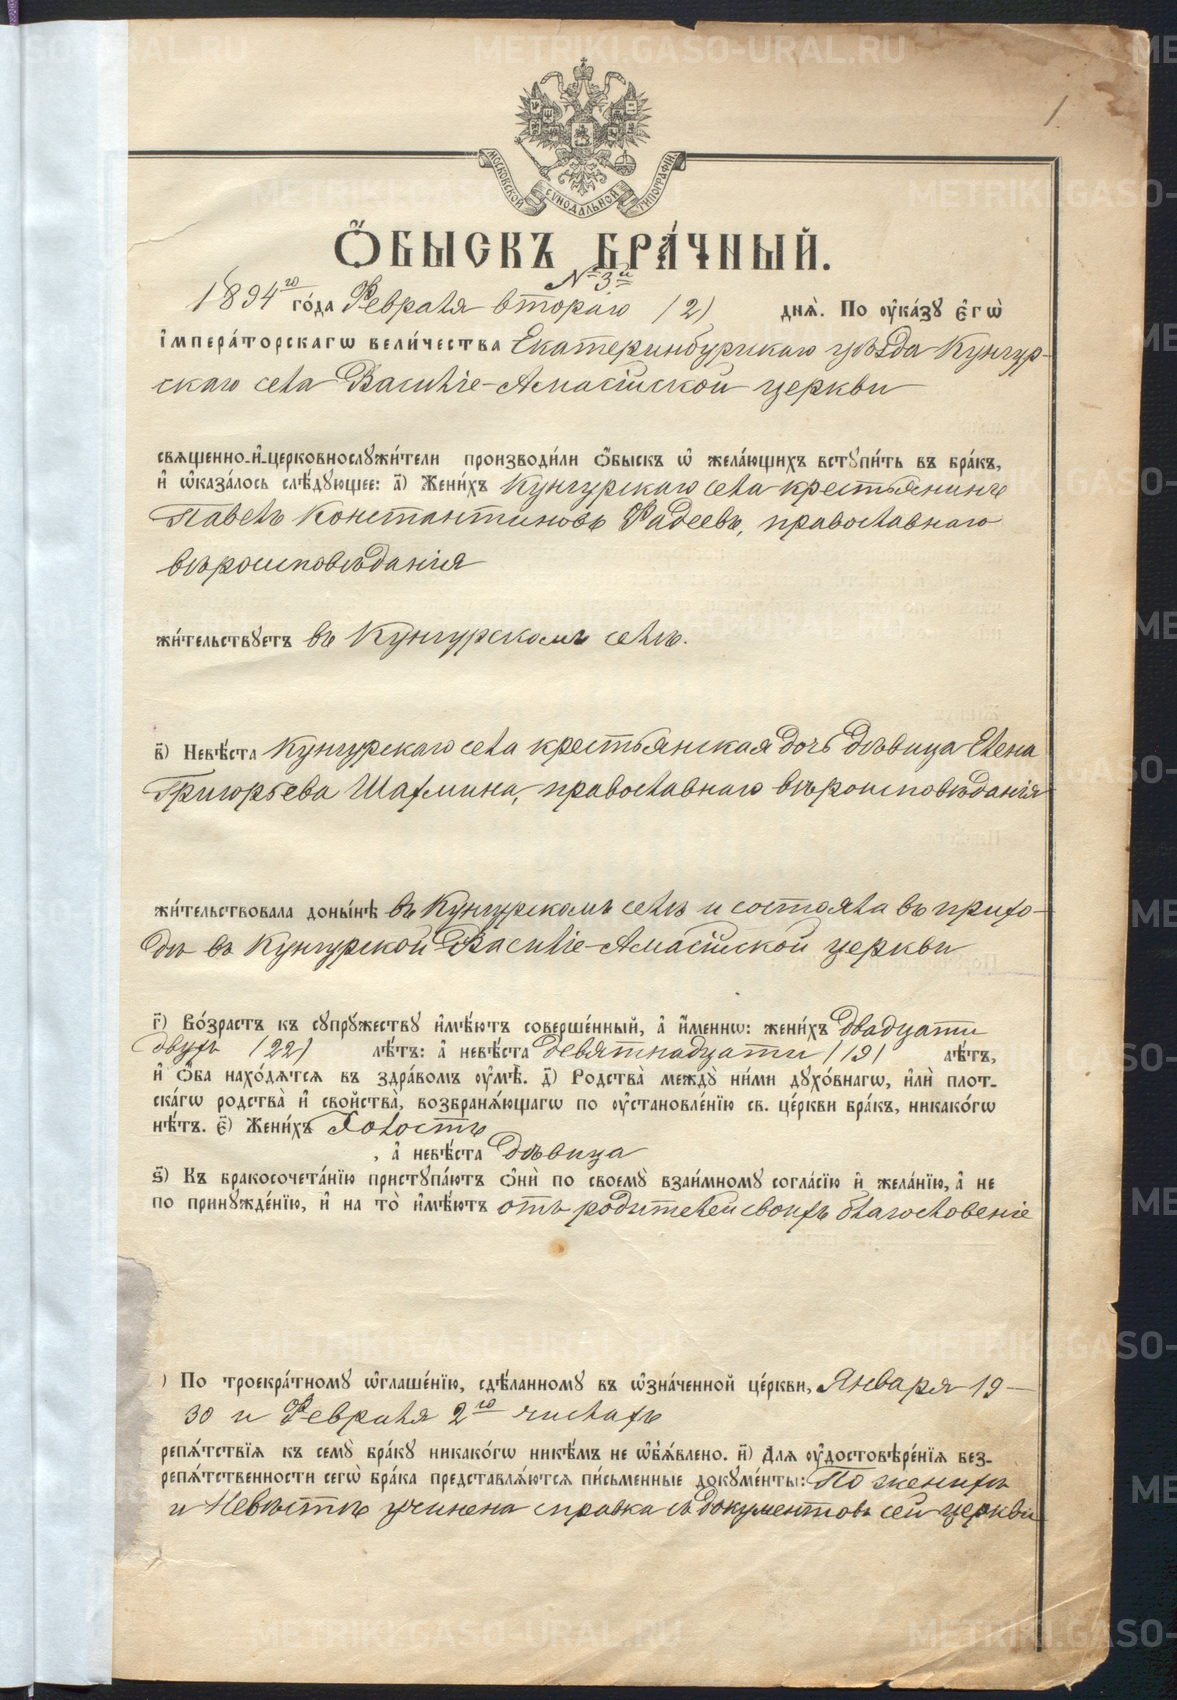 METRIKI.GASO-URAL.RU
1
МОСКОВСКОЙ СѴНОДАЛЬНОЙ ТИПОГРАФІИ
Ѻ҆БЫСКЪ БРА́ЧНЫЙ.
№ 3й
1894го го́да Февраля втораго /2/ днѧ̀. По ᲂу҆ка́зꙋ є҆гѡ̀
і҆мпера́торскагѡ вели́чества Екатеринбургскаго уѣзда Кунгур-
скаго села Василіе-Амасійской церкви
свѧщенно-и҆-церковнослꙋжи́тели производи́ли ѻ҆́быскъ ѡ҆ жела́ющихъ встꙋпи́ть въ бра́къ,
и҆ ѡ҆каза́лось слѣ́дꙋющее: а҃) Жени́хъ Кунгурскаго села крестьянинъ
Павелъ Константиновъ Фадеевъ, православнаго
вѣроисповѣданія
жи́тельствꙋетъ въ Кунгурскомъ селѣ.
в҃) Невѣ́ста Кунгурскаго села крестьянская дочь дѣвица Елена
Григорьева Шахмина, православнаго вѣроисповѣданія
жи́тельствовала доны́нѣ въ Кунгурскомъ селѣ и состояла въ прихо-
дѣ въ Кунгурской Василіе-Амасійской церкви
г҃) Во́зрастъ къ сꙋпрꙋ́жествꙋ и҆мѣ́ютъ соверше́нный, а҆ и҆́меннѡ: жени́хъ двадцати
двухъ /22/ лѣ́тъ: а҆ невѣ́ста девятнадцати /19/ лѣ́тъ,
и҆ ѻ҆́ба нахо́дѧтсѧ въ здра́вомъ ᲂу҆мѣ̀. д҃) Родства̀ междꙋ̀ ни́ми дꙋхо́внагѡ, и҆лѝ плот-
ска́гѡ родства̀ и҆ сво́йства̀, возбранѧ́ющагѡ по ᲂу҆становле́нїю св. це́ркви бра́къ, никако́гѡ
нѣ́тъ. є҃) Жени́хъ Холостъ
, а҆ невѣ́ста дѣвица
ѕ҃) Къ бракосочета́нїю пристꙋпа́ютъ ѻ҆нѝ по своемꙋ̀ взаи́мномꙋ согла́сїю и҆ жела́нїю, а҆ не
по принꙋжде́нїю, и҆ на то̀ и҆мѣ́ютъ отъ родителей своихъ благословеніе
) По троекра́тномꙋ ѡ҆глаше́нїю, сдѣ́ланномꙋ въ ѡ҆зна́ченной це́ркви, Января 19-
30 и Февраля 2го числахъ
репѧ́тствїѧ къ семꙋ̀ бра́кꙋ никако́гѡ никѣ́мъ не ѡ҆б̾ѧ́влено. и҃) Длѧ ᲂу҆достовѣре́нїѧ без-
репѧ́тственности сегѡ̀ бра́ка представлѧ́ютсѧ пи́сьменные докꙋме́нты: По женихѣ
и Невѣстѣ учинена справка съ документовъ сей церкви